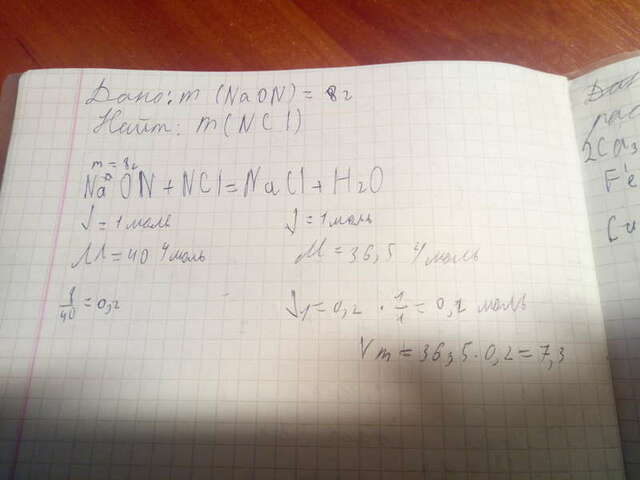 Дано: m (NaON) = 8г
Найт: m(NCl)
m = 8г
NaON + NCl = NaCl + H2O
J = 1 моль J = 1 моль
M = 40 г/моль M = 36,5 г/моль
8/40 = 0,2 J1 = 0,2 · 1/1 = 0,2 моль
m = 36,5 · 0,2 = 7,3
2Ca3
Fe